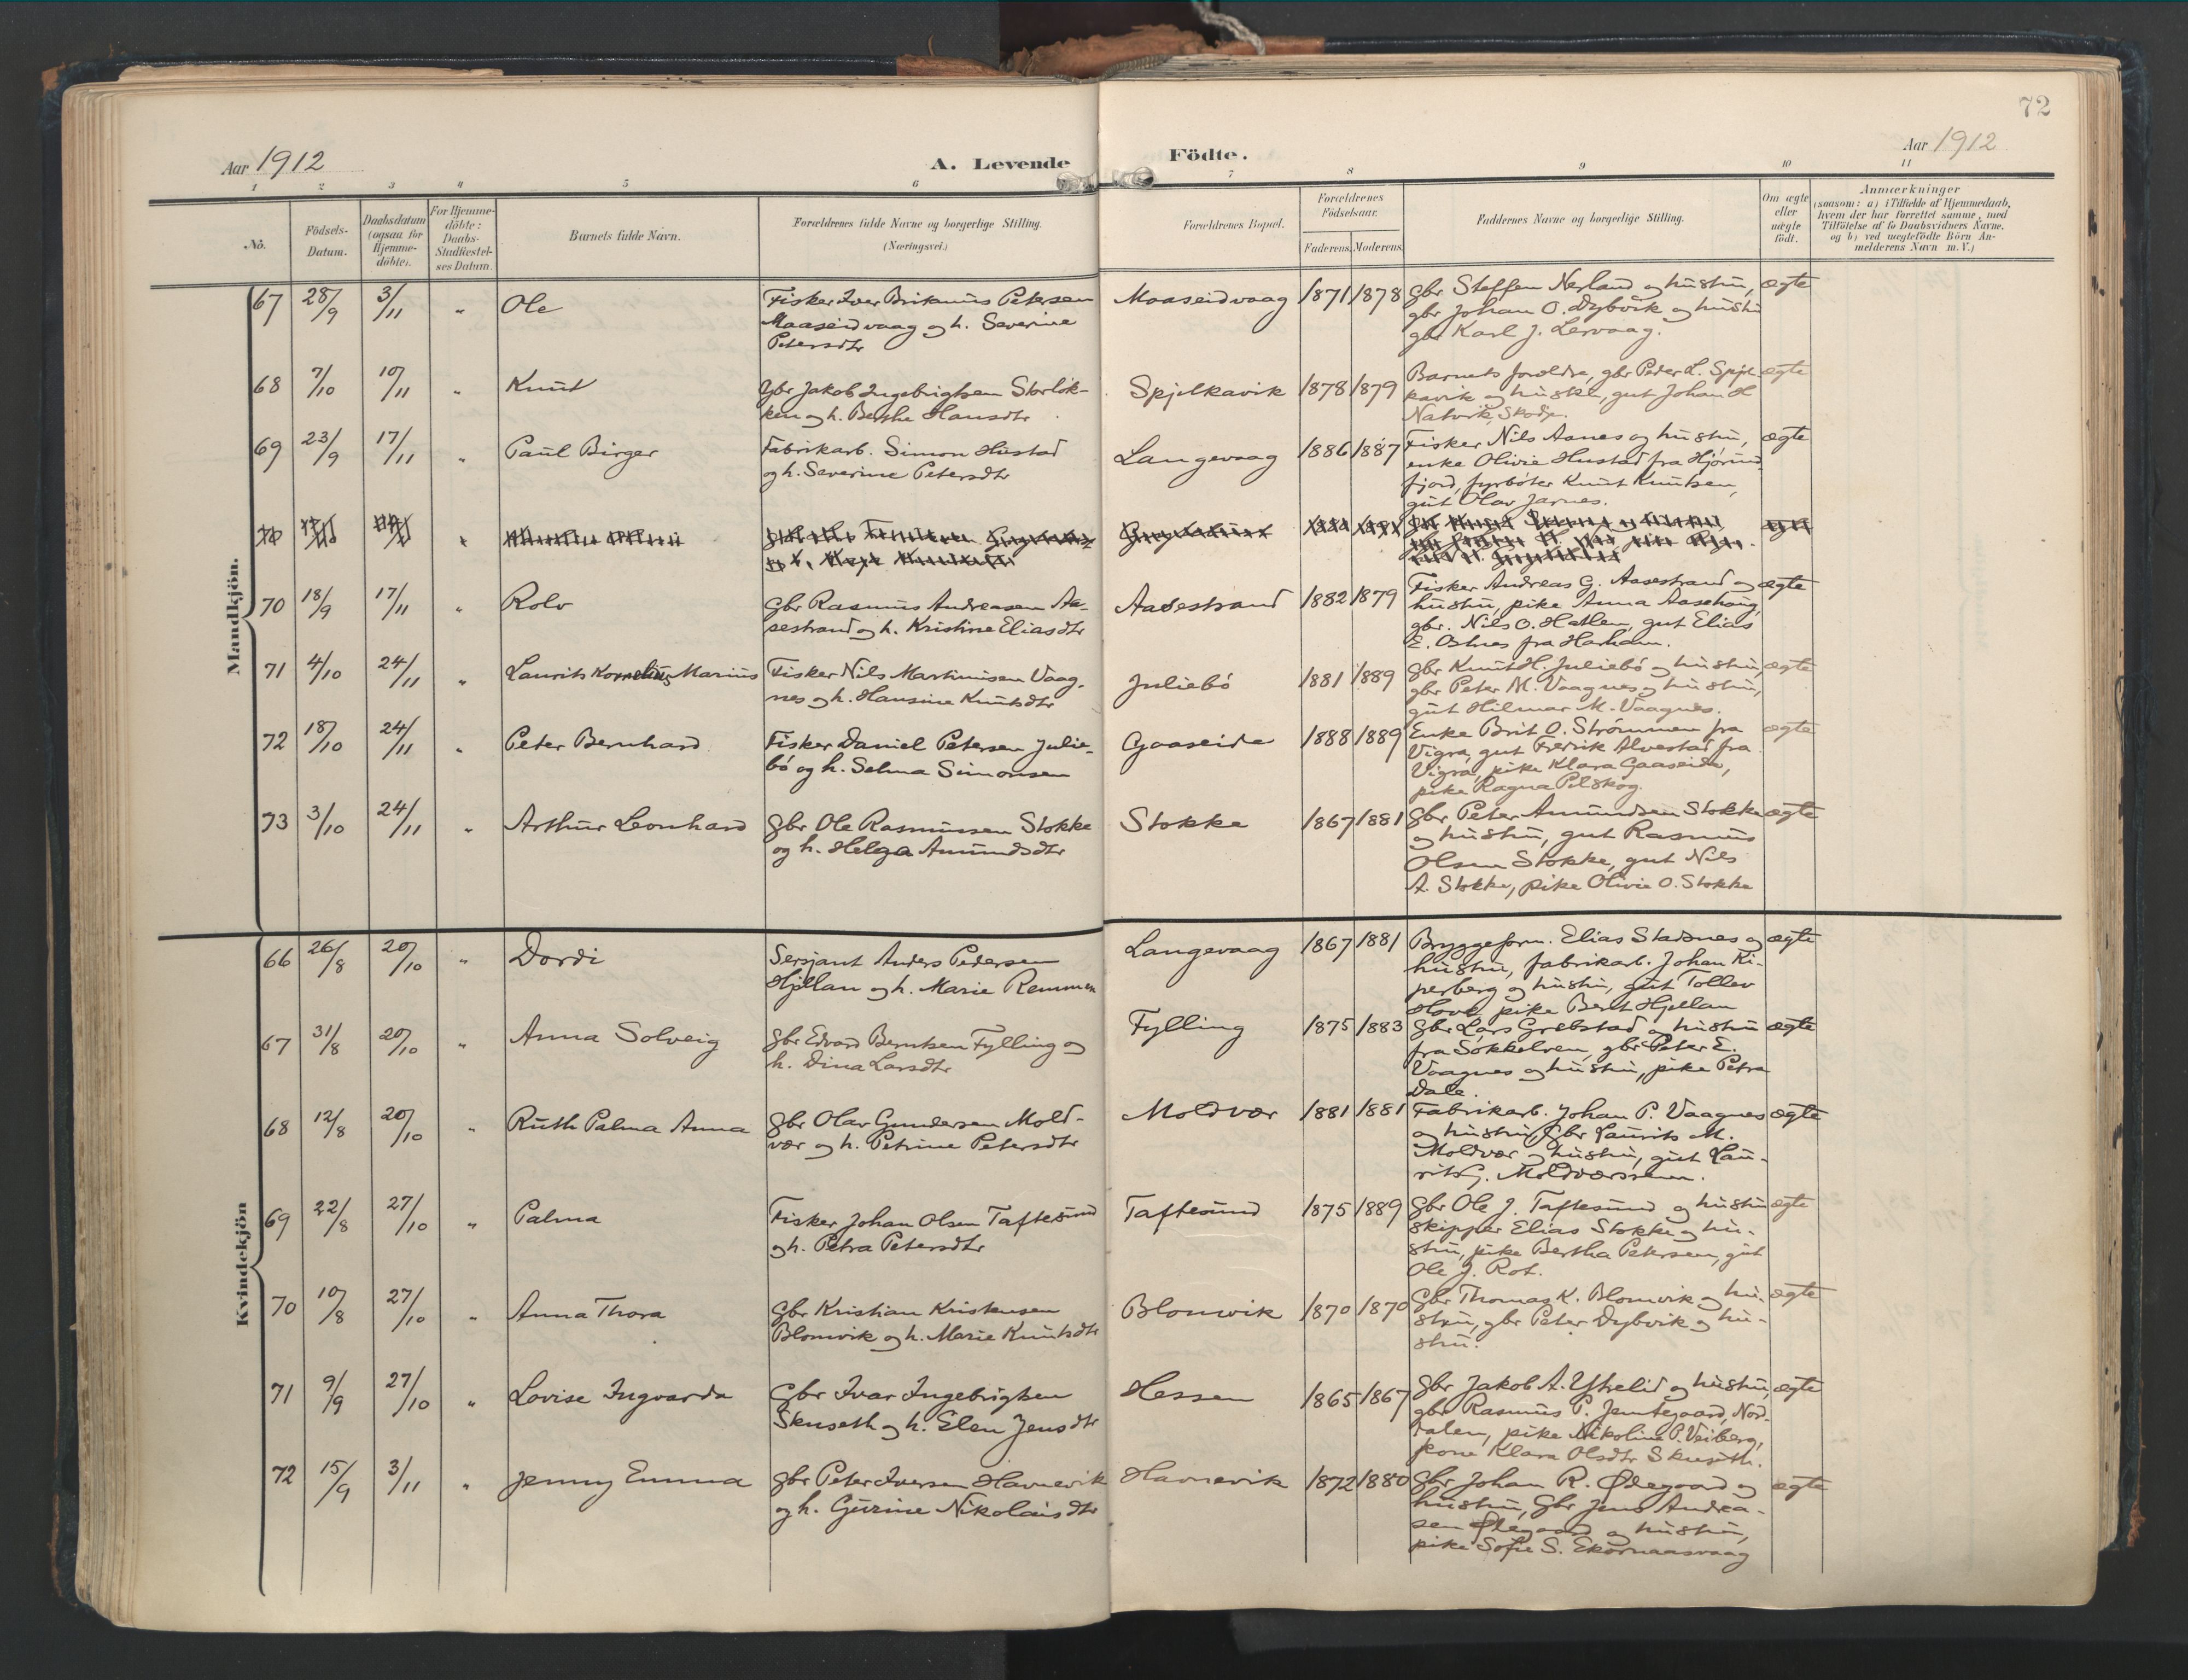 72
Aar 1912
A. Levende Födte.
Aar 1912
1 2 3 4 5 6 7 8 9 10 11
No.
Födsels-
Datum.
Daabsdatum
(ogsaa for
Hjemme-
döbte).
For Hjemme-
döbte:
Daabs-
Stadfæstel-
ses Datum.
Barnets fulde Navn.
Forældrenes fulde Navne og borgerlige Stilling.
(Næringsvei.)
Forældrenes Bopæl.
Forældrenes
Födselsaar.
Faderens. Moderens.
Faddernes Navne og borgerlige Stilling.
Om ægte
eller
uægte
födt.
Anmærkninger
(saasom: a) i Tilfælde af Hjemmedaab,
hvem der har forrettet samme, med
Tilföielse af to Daabsvidners Navne,
og b) ved uægtefödte Börn An-
melderens Navn m. V.)
Mandkjön.
67 28/9 3/11 " Ole
Fisker Iver Petersen
Maaseidvaag og h. Severine
Petersdtr
Maaseidvaag 1871 1878
gbr Steffen Nesland og hustru,
gbr Johan O. Dybvik og hustru
gbr Karl J. Lervaag.
ægte
68 7/10 10/11 " Knut
Gbr Jakob Ingebrigtsen Storløk-
ken og h. Berthe Hansdtr
Spjelkavik 1878 1879
Barnets foreldre, gbr Peder L. Spjel-
kavik og hustru, gut Johan H
Natvik, Skodje.
ægte
69 23/9 17/11 " Paul Birger
Fabrikarb. Simon Hustad
og h. Severine Petersdtr
Langevaag 1886 1887
Fisker Nils Aanes og hustru,
enke Olivie Hustad fra Hjørund-
fjord, fyrbøter Knut Knutsen,
gut Olav Jarnes.
ægte
70 18/9 17/11 " Rolv
Gbr Rasmus Andreasen Aa-
sestrand og h. Kristine Eliasdtr
Aasestrand 1882 1879
Fisker Andreas G. Aasestrand og
hustru, pike Anna Aasehaug,
gbr. Nils O. Hatlem, gut Elias
E. Østnes fra Harham.
ægte
71 4/10 24/11 " Laurits Kornelius Marius
Fisker Nils Martinusen Vaag-
nes og h. Hansine Knutsdtr
Juliebö 1881 1889
gbr Knut H. Juliebö og hustru,
gbr Peter M. Vaagnes og hustru,
gut Hilmar M. Vaagnes.
ægte
72 18/10 24/11 " Peter Bernhard
Fisker Daniel Petersen Julie-
bö og h. Selma Simonsen
Gaaseide 1888 1889
Enke Brit O. Strömmen fra
Vigra, gut Fredrik Alvestad fra
Vigra, pike Klara Gaaseide,
pike Ragna Pilskog.
ægte
73 3/10 24/11 " Arthur Leonhard
Gbr Ole Rasmussen Stokke
og h. Helga Amundsdtr
Stokke 1867 1881
Gbr Peter Amundsen Stokke
og hustru, gut Rasmus
Olsen Stokke, gut Nils
A. Stokke, pike Olivie O. Stokke
ægte
Kvindekjön
66 26/8 20/10 " Dordi
Sersjant Anders Pedersen
Hjellan og h. Marie Remmen
Langevaag 1867 1881
Bryggeform. Elias Stadsnes og
hustru, fabrikarb. Johan Ki-
perberg og hustru, gut Tollev
Hove, pike Berit Hjellan
ægte
67 31/8 20/10 " Anna Solveig
Gbr Edvard Berntsen Fylling og
h. Dina Larsdtr
Fylling 1875 1883
Gbr Lars Grebstad og hustru
fra Søkkelven, gbr Peter E.
Vaagnes og hustru, pike Petra
Dale.
ægte
68 12/8 20/10 " Ruth Palma Anna
Gbr Olav Gundersen Mold-
vær og h. Petrine Petersdtr
Moldvær 1881 1881
Fabrikarb. Johan P. Vaagnes
og hustru, Gbr Laurits M.
Moldvær og hustru, gut Lau-
rits J. Moldværsmen.
ægte
69 22/8 27/10 " Palma
Fisker Johan Olsen Taftesund
og h. Petra Petersdtr
Taftesund 1875 1889
Gbr Ole J. Taftesund og hustru
skipper Elias Stokke og hu-
stru, pike Bertha Petersen, gut
Ole J. Rot.
ægte
70 10/8 27/10 " Anna Thora
Gbr Kristian Kristensen
Blomvik og h. Marie Knutsdtr
Blomvik 1870 1870
Gbr Thomas K. Blomvik og hu-
stru, gbr Peter Dybvik og hu-
stru.
ægte
71 9/9 27/10 " Lovise Ingvarda
Gbr Ivar Ingebrigtsen
Skuseth og h. Elen Jensdtr
Hessen 1865 1867
Gbr Jakob A. Ytrelid og hustru,
gbr Rasmus P. Jemtegaard, Nor-
dalen, pike Nikoline P. Veiberg,
kone Klara Olsdtr Skuseth.
ægte
72 15/9 3/11 " Jenny Emma
Gbr Peter Iversen Havnevik
og h. Gurine Nikolaisdtr
Havnevik 1872 1880
Gbr Johan R. Ødegaard og
hustru, Gbr Jens Andrea-
sen Ødegaard og hustru,
pike Sofie S. Ekornaasvaag
ægte